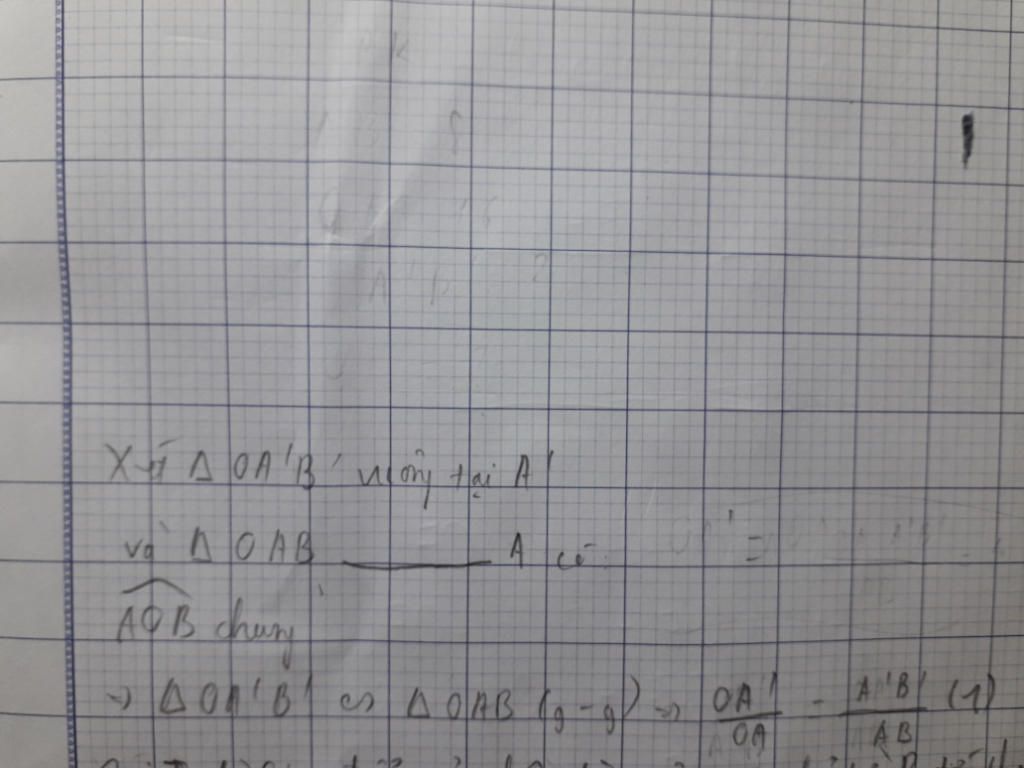 Xét Δ OA'B' vuông tại A'
và Δ OAB ______ A có
AOB chung
→ Δ OA'B' ∽ Δ OAB (g-g) → OA'/OA = A'B'/AB (1)